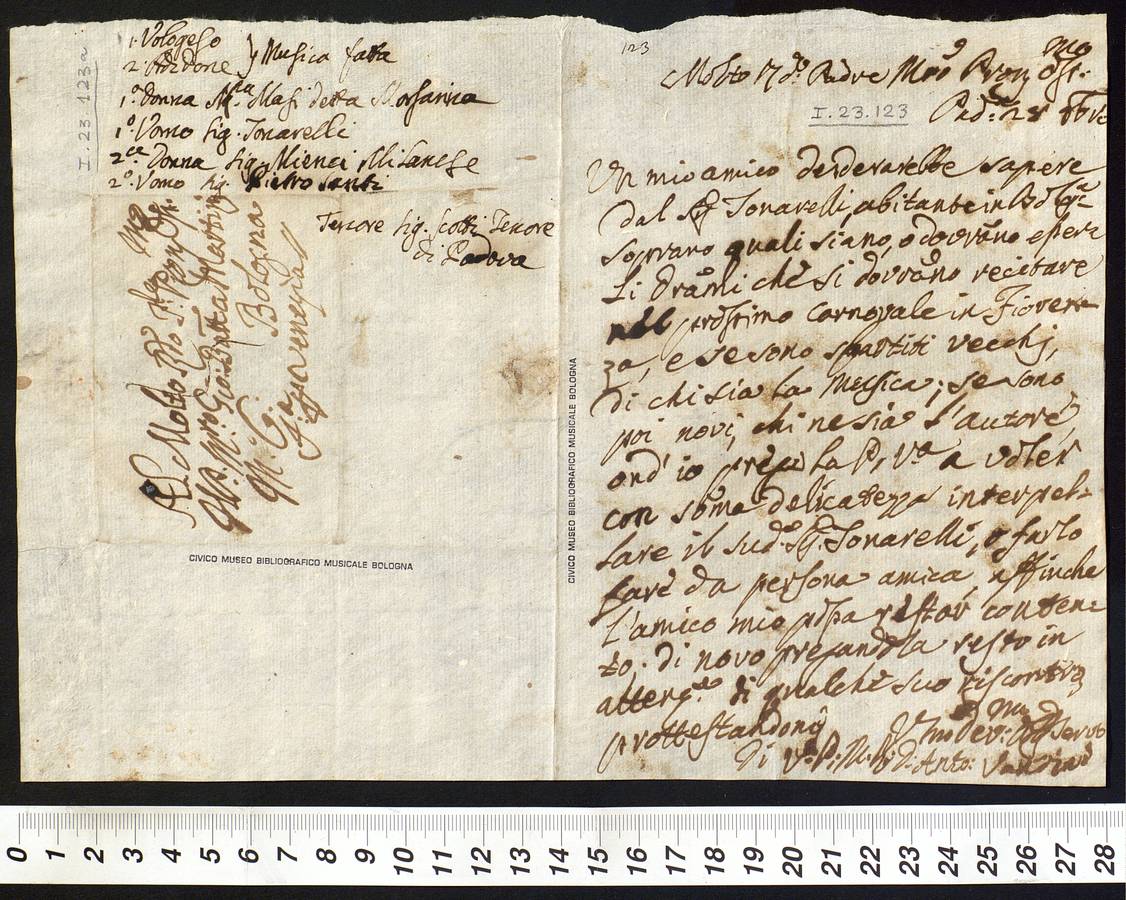 1. Vologeso
2. Didone } Musica fatta
1.a Donna Sig.ra Masi detta Morsarina
1.o Vomo Sig. Tonarelli
2.ce Donna Sig. Mienci Milanese
2.o Vomo Sig. Pietro Santi
Tenore Sig. Scotti Tenore
di Padova
I.23.123a
Al Molto Rdo
Gio: Batta Martini
M. C. Bologna
Fran
CIVICO MUSEO BIBLIOGRAFICO MUSICALE BOLOGNA
CIVICO MUSEO BIBLIOGRAFICO MUSICALE BOLOGNA
123
Molto R.do Padre Mro Pron Oss.mo
I.23.123
Pad.a 28
Un mio amico desiderarebbe sapere
dal Sig. Tonarelli, abitante in
soprano quali siano, o dovrano esere
Li Drami che si dovrano recitare
nel prossimo Carnovale in Fioren
za, e se sono spartiti vecchj,
di chi sia La Musica; se sono
poi novi, chi ne sia l'autore,
ond' io prego La P. V.a a voler
con soma delicatezza interpel-
lare il sud.o Sig. Tonarelli, o farlo
fare da persona amica, affinche
l'amico mio possa restar conten-
to. di novo pregandola resto in
attenz.ne di qualche suo riscontro
prottestandomi
Di V. P. M. R. Vmo dev: Obb Servo
D. Anto: Vandini
0 1 2 3 4 5 6 7 8 9 10 11 12 13 14 15 16 17 18 19 20 21 22 23 24 25 26 27 28